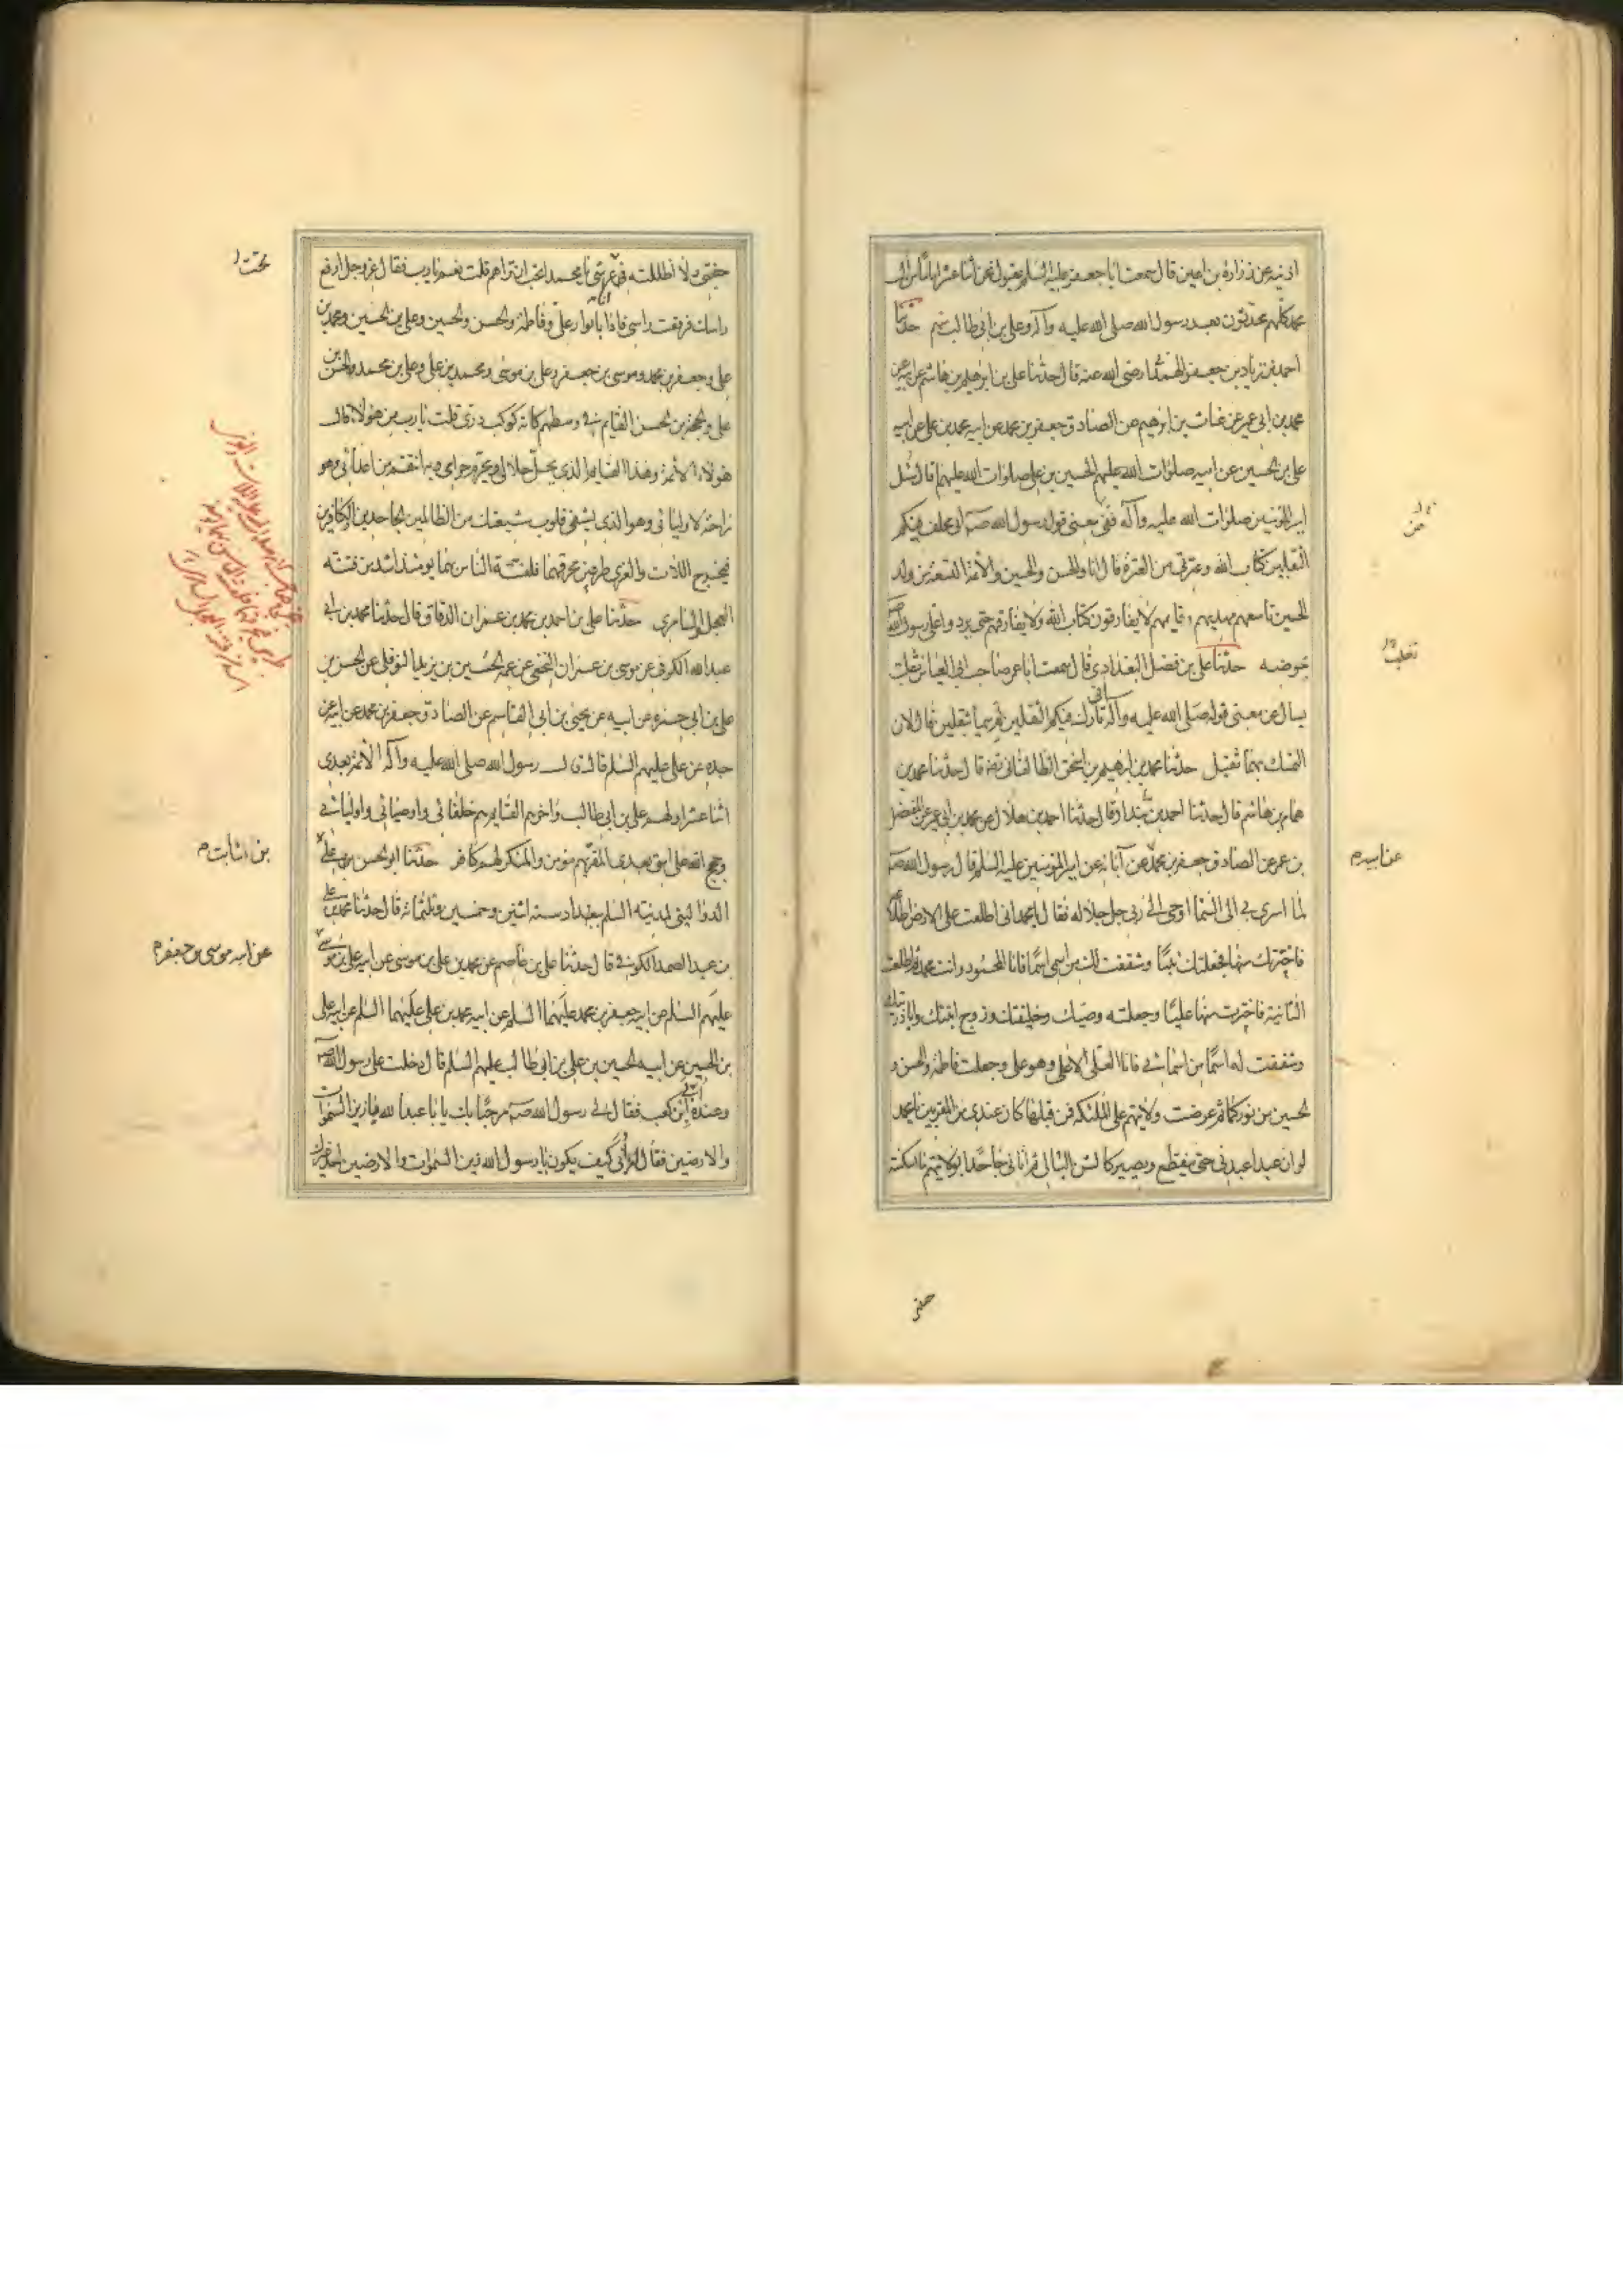 اذينه عن زرارة بن اعين قال سمعت ابا جعفر عليه السلم يقول نحن اثنا عشر اماما من آل
محمد كلهم محدثون بعد رسول الله صلى الله عليه وآله وعلى بن ابي طالب منهم حدثنا
احمد بن زياد بن جعفر الهمداني رضى الله عنه قال حدثنا على بن ابرهيم بن هاشم عن ابيه عن
محمد بن ابي عمير عن غياث بن ابرهيم عن الصادق جعفر بن محمد عن ابيه محمد بن على عن ابيه
على بن الحسين عن ابيه صلوات الله عليهم الحسين بن على صلوات الله عليهم قال سئل
امير المؤمنين صلوات الله عليه وآله عن معنى قول رسول الله صه انى مخلف فيكم
الثقلين كتاب الله وعترتى من العترة قال انا والحسن والحسين والائمة التسعة من ولد
الحسين تاسعهم مهديهم وقايمهم لا يفارقون كتاب الله ولا يفارقهم حتى يردوا على رسول الله صه
حوضه حدثنا على بن فضل البغدادى قال سمعت ابا عمر صاحب ابي العباس ثعلب
يسال عن معنى قوله صلى الله عليه وآله انى تارك فيكم الثقلين لم سميا ثقلين قال لان
التمسك بهما ثقيل حدثنا محمد بن ابرهيم بن اسحق الطالقانى رضه قال حدثنا محمد بن
همام بن هاشم قال حدثنا احمد بن بندار قال حدثنا احمد بن هلال عن محمد بن ابي عمير عن المفضل
بن عمر عن الصادق جعفر بن محمد عن آبائه عن امير المؤمنين عليه السلم قال رسول الله صه
لما اسرى بى الى السما اوحى الى ربى جل جلاله فقال يا محمد انى اطلعت على الارض اطلاعة
فاخترتك منها فجعلتك نبيا وشققت لك من اسمى اسما فانا المحمود وانت محمد ثم اطلعت
الثانية فاخترت منها عليا وجعلته وصيك وخليفتك وزوج ابنتك وابا ذريتك
وشققت له اسما من اسمائى فانا العلى الاعلى وهو على وجعلت فاطمة والحسن و
الحسين من نوركما ثم عرضت ولايتهم على الملئكه فمن قبلها كان عندى من المقربين يا محمد
لو ان عبدا عبدنى حتى ينقطع ويصير كالشن البالى ثم اتانى جاحدا بولايتهم ما اسكنته
عن
ثعلب
عن ابيه م
جنتى
جنتى ولا اظللته تحت عرشى يا محمد اتحب ان تراهم قلت نعم يا رب فقال عز وجل ارفع
راسك فرفعت راسى فاذا انا بانوار على وفاطمة والحسن والحسين وعلى بن الحسين ومحمد بن
على وجعفر بن محمد وموسى بن جعفر وعلى بن موسى ومحمد بن على وعلى بن محمد والحسن بن
على والحجة بن الحسن القايم فى وسطهم كانه كوكب درى قلت يا رب من هولاء قال
هولاء الائمة وهذا القايم الذى يحل حلالى ويحرم حرامى وبه انتقم من اعدائى وهو
راحة لاوليائى وهو الذى يشفى قلوب شيعتك من الظالمين الجاحدين والكافرين
فيخرج اللات والعزى طريين فيحرقهما فلفتنة الناس بهما يومئذ اشد من فتنة
العجل والسامرى حدثنا على بن احمد بن محمد بن عمران الدقاق قال حدثنا محمد بن ابي
عبد الله الكوفى عن موسى بن عمران النخعى عن عمه الحسين بن يزيد النوفلى عن الحسن بن
على بن ابي حمزه عن ابيه عن يحيى بن ابي القاسم عن الصادق جعفر بن محمد عن ابيه عن
جده عن على عليهم السلم قال قال رسول الله صلى الله عليه وآله الائمة بعدى
اثنا عشر اولهم على بن ابي طالب واخرهم القايم هم خلفائى واوصيائى واوليائى
وحجج الله على امتى بعدى المقر بهم مؤمن والمنكر لهم كافر حدثنا ابو الحسن على
الدواليبى بمدينة السلم بغداد سنه اثنين وخمسين وثلثمائة قال حدثنا محمد بن على
بن عبد الصمد الكوفى قال حدثنا على بن عاصم عن محمد بن على بن موسى عن ابيه على بن موسى
عليهم السلم عن ابيه جعفر بن محمد عليهما السلم عن ابيه محمد بن على عليهما السلم عن ابيه على
بن الحسين عن ابيه الحسين بن على بن ابي طالب عليهم السلم قال دخلت على رسول الله صه
وعنده ابى بن كعب فقال لى رسول الله صه مرحبا بك يا با عبد الله يا زين السموات
والارضين فقال له ابى كيف يكون يا رسول الله زين السموات والارضين احد غيرك
تحت
بن الثابت م
عن ابيه موسى بن جعفر م